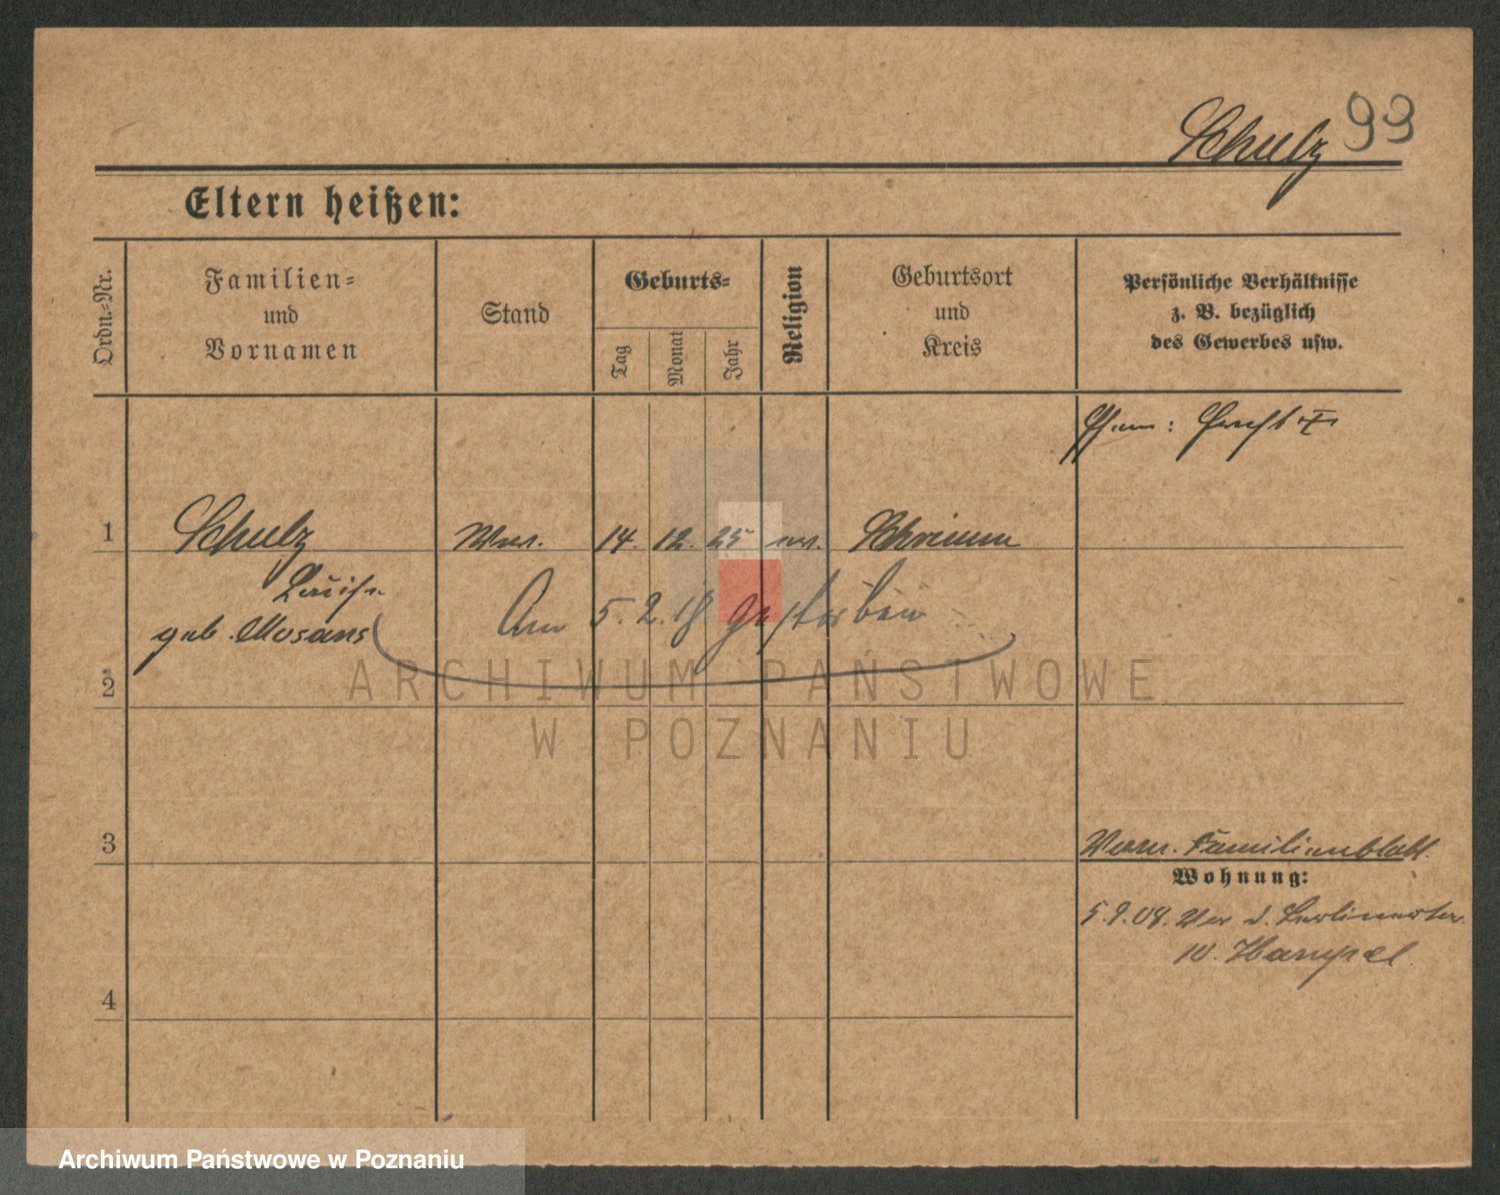 Schulz 99
Eltern heißen:
Ordn.-Nr.
Familien-
und
Vornamen
Stand
Geburts-
Tag
Monat
Jahr
Religion
Geburtsort
und
Kreis
Persönliche Verhältnisse
z. B. bezüglich
des Gewerbes usw.
1
Schulz
Wwe. 14. 12. 25 ev. Schrimm
Louise
geb. Mosans
Am 5. 2. 18 gestorben
2
3
4
Familienblatt
Wohnung:
5.9.08. v. d. Berlinertor
10. Hampel.
ARCHIWUM PAŃSTWOWE
W POZNANIU
Archiwum Państwowe w Poznaniu